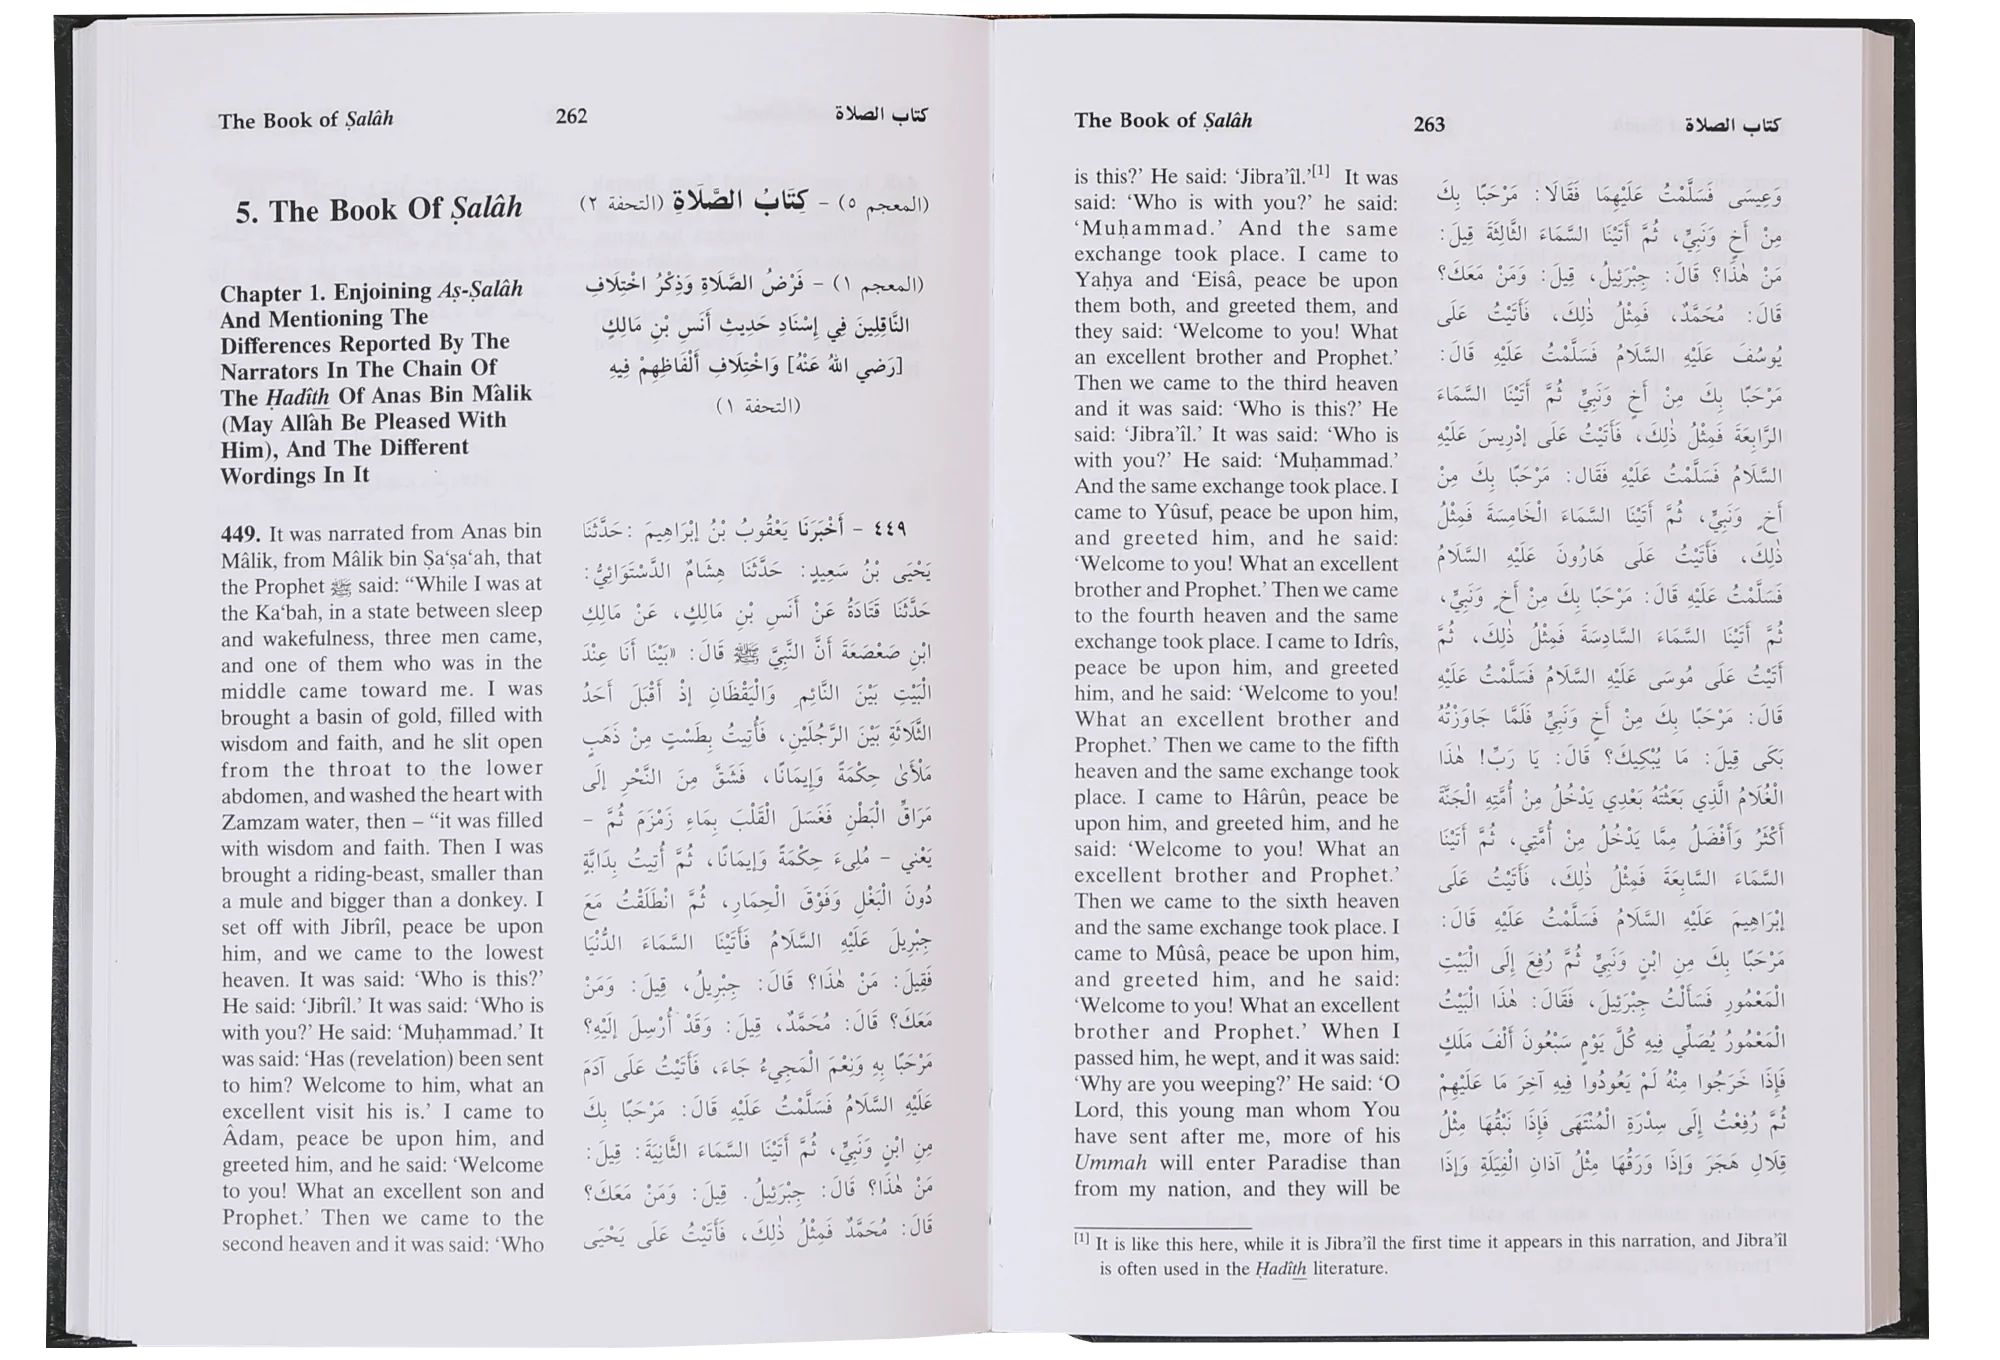 The Book of Ṣalâh 262 كتاب الصلاة
5. The Book Of Ṣalâh
Chapter 1. Enjoining Aṣ-Ṣalâh
And Mentioning The
Differences Reported By The
Narrators In The Chain Of
The Ḥadîth Of Anas Bin Mâlik
(May Allâh Be Pleased With
Him), And The Different
Wordings In It
449. It was narrated from Anas bin
Mâlik, from Mâlik bin Ṣa‘ṣa‘ah, that
the Prophet ﷺ said: “While I was at
the Ka‘bah, in a state between sleep
and wakefulness, three men came,
and one of them who was in the
middle came toward me. I was
brought a basin of gold, filled with
wisdom and faith, and he slit open
from the throat to the lower
abdomen, and washed the heart with
Zamzam water, then – “it was filled
with wisdom and faith. Then I was
brought a riding-beast, smaller than
a mule and bigger than a donkey. I
set off with Jibrîl, peace be upon
him, and we came to the lowest
heaven. It was said: ‘Who is this?’
He said: ‘Jibrîl.’ It was said: ‘Who is
with you?’ He said: ‘Muḥammad.’ It
was said: ‘Has (revelation) been sent
to him? Welcome to him, what an
excellent visit his is.’ I came to
Âdam, peace be upon him, and
greeted him, and he said: ‘Welcome
to you! What an excellent son and
Prophet.’ Then we came to the
second heaven and it was said: ‘Who
(المعجم ٥) – كِتَابُ الصَّلَاةِ (التحفة ٢)
(المعجم ١) – فَرْضُ الصَّلَاةِ وَذِكْرُ اخْتِلَافِ
النَّاقِلِينَ فِي إِسْنَادِ حَدِيثِ أَنَسِ بْنِ مَالِكٍ
[رَضي اللهُ عَنْهُ] وَاخْتِلَافِ أَلْفَاظِهِمْ فِيهِ
(التحفة ١)
٤٤٩ – أَخْبَرَنَا يَعْقُوبُ بْنُ إِبْرَاهِيمَ : حَدَّثَنَا
يَحْيَى بْنُ سَعِيدٍ: حَدَّثَنَا هِشَامٌ الدَّسْتَوَائِيُّ:
حَدَّثَنَا قَتَادَةُ عَنْ أَنَسِ بْنِ مَالِكٍ، عَنْ مَالِكِ
ابْنِ صَعْصَعَةَ أَنَّ النَّبِيَّ ﷺ قَالَ: «بَيْنَا أَنَا عِنْدَ
الْبَيْتِ بَيْنَ النَّائِمِ وَالْيَقْظَانِ إِذْ أَقْبَلَ أَحَدُ
الثَّلَاثَةِ بَيْنَ الرَّجُلَيْنِ، فَأُتِيتُ بِطَسْتٍ مِنْ ذَهَبٍ
مَلْأَىٰ حِكْمَةً وَإِيمَانًا، فَشَقَّ مِنَ النَّحْرِ إِلَى
مَرَاقِّ الْبَطْنِ فَغَسَلَ الْقَلْبَ بِمَاءِ زَمْزَمَ ثُمَّ –
يَعْني – مُلِىءَ حِكْمَةً وَإِيمَانًا، ثُمَّ أُتِيتُ بِدَابَّةٍ
دُونَ الْبَغْلِ وَفَوْقَ الْحِمَارِ، ثُمَّ انْطَلَقْتُ مَعَ
جِبْرِيلَ عَلَيْهِ السَّلَامُ فَأَتَيْنَا السَّمَاءَ الدُّنْيَا
فَقِيلَ: مَنْ هٰذَا؟ قَالَ: جِبْرِيلُ، قِيلَ: وَمَنْ
مَعَكَ؟ قَالَ: مُحَمَّدٌ، قِيلَ: وَقَدْ أُرْسِلَ إِلَيْهِ؟
مَرْحَبًا بِهِ وَنِعْمَ الْمَجِيءُ جَاءَ، فَأَتَيْتُ عَلَى آدَمَ
عَلَيْهِ السَّلَامُ فَسَلَّمْتُ عَلَيْهِ قَالَ: مَرْحَبًا بِكَ
مِنِ ابْنٍ وَنَبِيٍّ، ثُمَّ أَتَيْنَا السَّمَاءَ الثَّانِيَةَ: قِيلَ:
مَنْ هٰذَا؟ قَالَ: جِبْرَئِيلُ. قِيلَ: وَمَنْ مَعَكَ؟
قَالَ: مُحَمَّدٌ فَمِثْلُ ذٰلِكَ، فَأَتَيْتُ عَلَى يَحْيَى
The Book of Ṣalâh 263 كتاب الصلاة
is this?’ He said: ‘Jibra’îl.’[1] It was
said: ‘Who is with you?’ he said:
‘Muḥammad.’ And the same
exchange took place. I came to
Yaḥya and ‘Eisâ, peace be upon
them both, and greeted them, and
they said: ‘Welcome to you! What
an excellent brother and Prophet.’
Then we came to the third heaven
and it was said: ‘Who is this?’ He
said: ‘Jibra’îl.’ It was said: ‘Who is
with you?’ He said: ‘Muḥammad.’
And the same exchange took place. I
came to Yûsuf, peace be upon him,
and greeted him, and he said:
‘Welcome to you! What an excellent
brother and Prophet.’ Then we came
to the fourth heaven and the same
exchange took place. I came to Idrîs,
peace be upon him, and greeted
him, and he said: ‘Welcome to you!
What an excellent brother and
Prophet.’ Then we came to the fifth
heaven and the same exchange took
place. I came to Hârûn, peace be
upon him, and greeted him, and he
said: ‘Welcome to you! What an
excellent brother and Prophet.’
Then we came to the sixth heaven
and the same exchange took place. I
came to Mûsâ, peace be upon him,
and greeted him, and he said:
‘Welcome to you! What an excellent
brother and Prophet.’ When I
passed him, he wept, and it was said:
‘Why are you weeping?’ He said: ‘O
Lord, this young man whom You
have sent after me, more of his
Ummah will enter Paradise than
from my nation, and they will be
وَعِيسَى فَسَلَّمْتُ عَلَيْهِمَا فَقَالَا: مَرْحَبًا بِكَ
مِنْ أَخٍ وَنَبِيٍّ، ثُمَّ أَتَيْنَا السَّمَاءَ الثَّالِثَةَ قِيلَ:
مَنْ هٰذَا؟ قَالَ: جِبْرَئِيلُ، قِيلَ: وَمَنْ مَعَكَ؟
قَالَ: مُحَمَّدٌ، فَمِثْلُ ذٰلِكَ، فَأَتَيْتُ عَلَى
يُوسُفَ عَلَيْهِ السَّلَامُ فَسَلَّمْتُ عَلَيْهِ قَالَ:
مَرْحَبًا بِكَ مِنْ أَخٍ وَنَبِيٍّ ثُمَّ أَتَيْنَا السَّمَاءَ
الرَّابِعَةَ فَمِثْلُ ذٰلِكَ، فَأَتَيْتُ عَلَى إِدْرِيسَ عَلَيْهِ
السَّلَامُ فَسَلَّمْتُ عَلَيْهِ فَقَال: مَرْحَبًا بِكَ مِنْ
أَخٍ وَنَبِيٍّ، ثُمَّ أَتَيْنَا السَّمَاءَ الْخَامِسَةَ فَمِثْلُ
ذٰلِكَ، فَأَتَيْتُ عَلَى هَارُونَ عَلَيْهِ السَّلَامُ
فَسَلَّمْتُ عَلَيْهِ قَالَ: مَرْحَبًا بِكَ مِنْ أَخٍ وَنَبِيٍّ،
ثُمَّ أَتَيْنَا السَّمَاءَ السَّادِسَةَ فَمِثْلُ ذٰلِكَ، ثُمَّ
أَتَيْتُ عَلَى مُوسَى عَلَيْهِ السَّلَامُ فَسَلَّمْتُ عَلَيْهِ
قَالَ: مَرْحَبًا بِكَ مِنْ أَخٍ وَنَبِيٍّ فَلَمَّا جَاوَزْتُهُ
بَكَى قِيلَ: مَا يُبْكِيكَ؟ قَالَ: يَا رَبِّ! هٰذَا
الْغُلَامُ الَّذِي بَعَثْتَهُ بَعْدِي يَدْخُلُ مِنْ أُمَّتِهِ الْجَنَّةَ
أَكْثَرُ وَأَفْضَلُ مِمَّا يَدْخُلُ مِنْ أُمَّتِي، ثُمَّ أَتَيْنَا
السَّمَاءَ السَّابِعَةَ فَمِثْلُ ذٰلِكَ، فَأَتَيْتُ عَلَى
إِبْرَاهِيمَ عَلَيْهِ السَّلَامُ فَسَلَّمْتُ عَلَيْهِ قَالَ:
مَرْحَبًا بِكَ مِن ابْنٍ وَنَبِيٍّ ثُمَّ رُفِعَ إِلَى الْبَيْتِ
الْمَعْمُورِ فَسَأَلْتُ جِبْرَئِيلَ، فَقَالَ: هٰذَا الْبَيْتُ
الْمَعْمُورُ يُصَلِّي فِيهِ كُلَّ يَوْمٍ سَبْعُونَ أَلْفَ مَلَكٍ
فَإِذَا خَرَجُوا مِنْهُ لَمْ يَعُودُوا فِيهِ آخِرَ مَا عَلَيْهِمْ
ثُمَّ رُفِعْتُ إِلَى سِدْرَةِ الْمُنْتَهَى فَإِذَا نَبْقُهَا مِثْلُ
قِلَالِ هَجَرَ وَإِذَا وَرَقُهَا مِثْلُ آذَانِ الْفِيَلَةِ وَإِذَا
[1] It is like this here, while it is Jibra’îl the first time it appears in this narration, and Jibra’îl
is often used in the Ḥadîth literature.